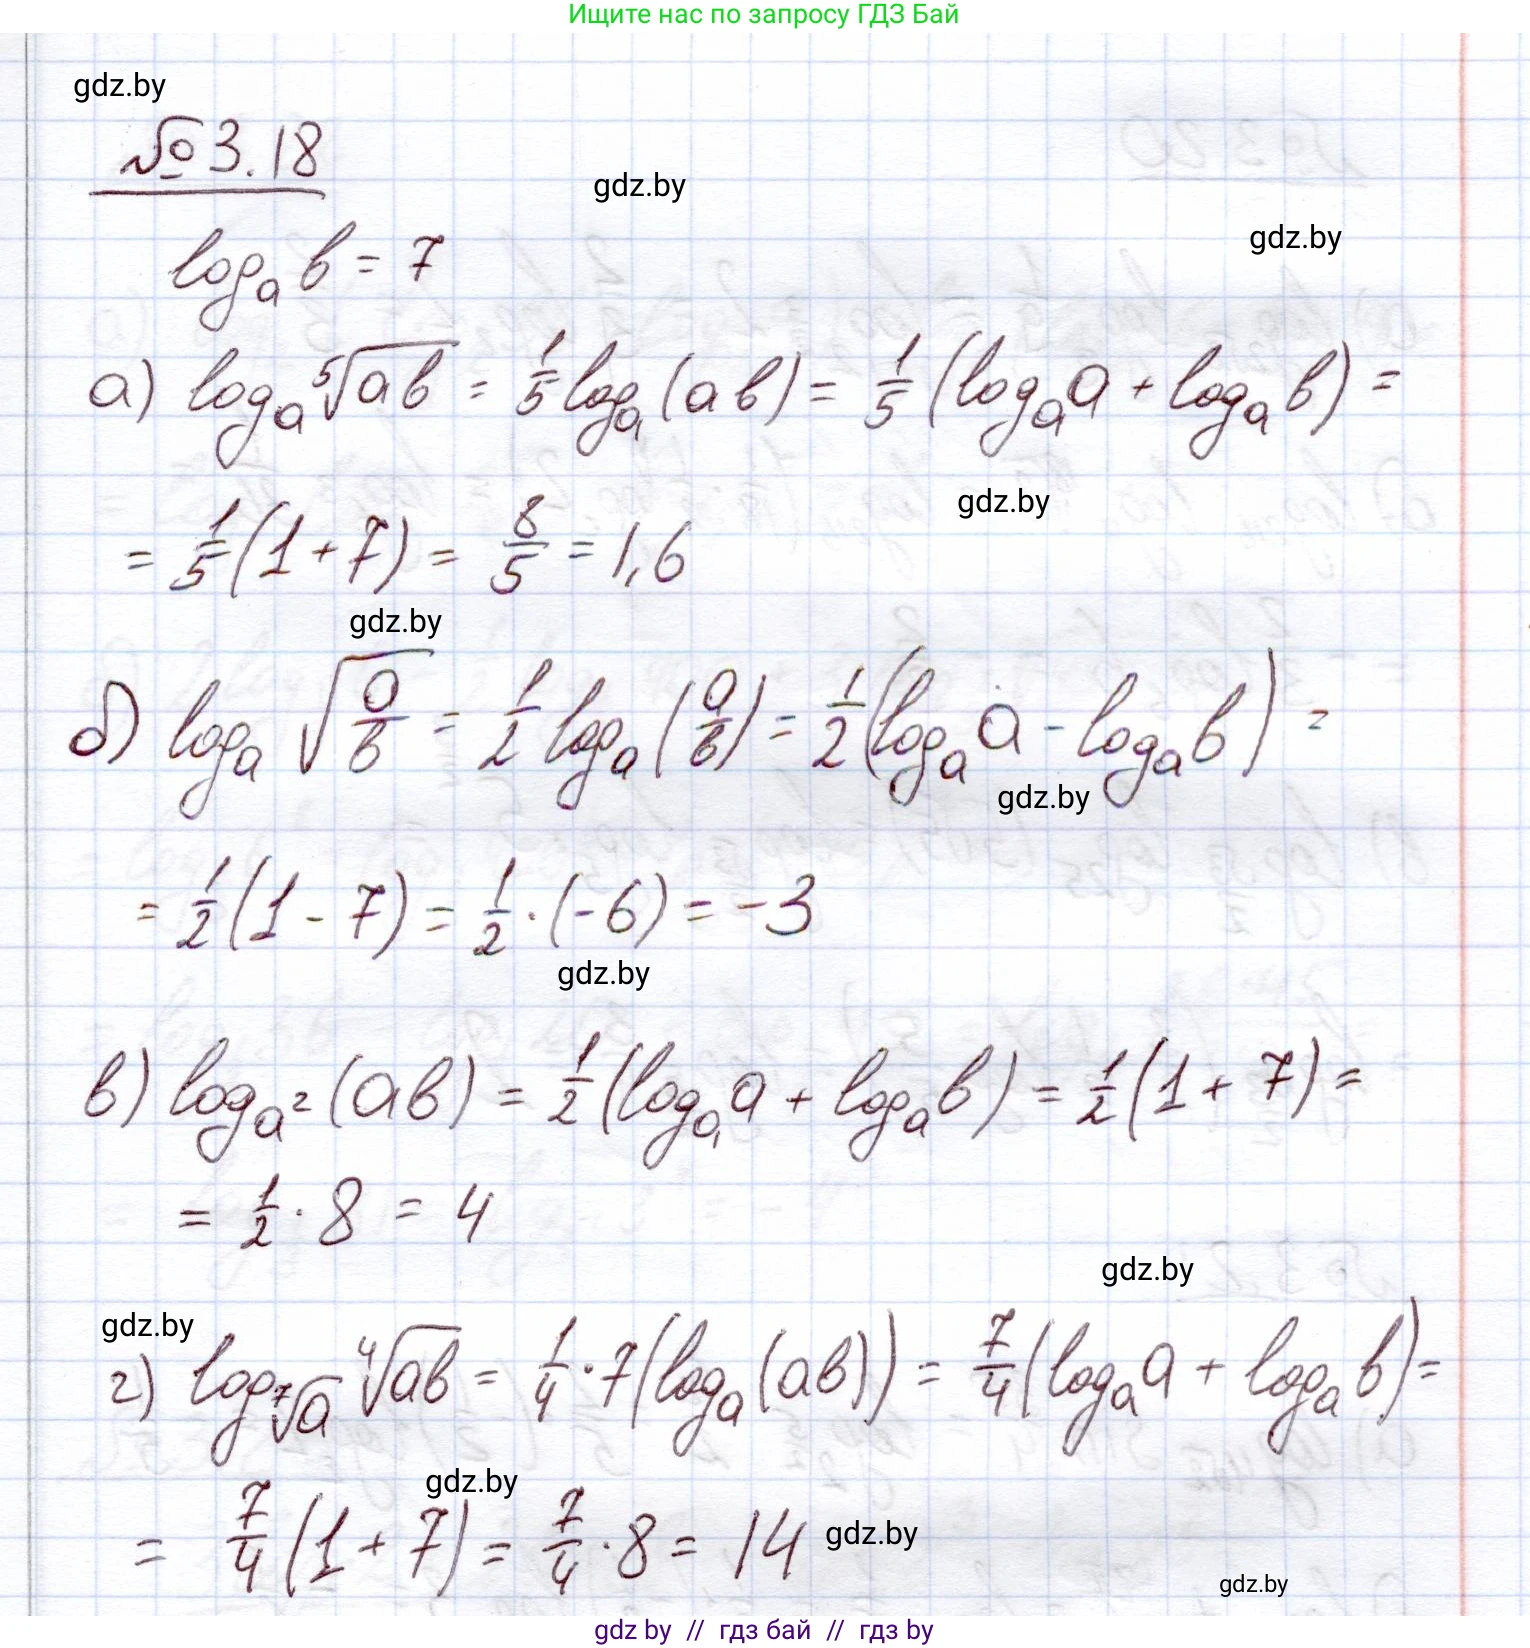 Ищите нас по запросу ГДЗ Бай
gdz.by
№ 3.18
gdz.by
gdz.by
logₐ b = 7
а) logₐ ⁵√(ab) = 1/5 logₐ(ab) = 1/5 (logₐ a + logₐ b) =
gdz.by
= 1/5 (1 + 7) = 8/5 = 1,6
gdz.by
б) logₐ √(a/b) = 1/2 logₐ(a/b) = 1/2 (logₐ a - logₐ b) =
gdz.by
= 1/2 (1 - 7) = 1/2 · (-6) = -3
gdz.by
в) log_{a²}(ab) = 1/2 (logₐ a + logₐ b) = 1/2 (1 + 7) =
= 1/2 · 8 = 4
gdz.by
gdz.by
г) log_{⁷√a} ⁴√(ab) = 1/4 · 7(logₐ(ab)) = 7/4 (logₐ a + logₐ b) =
gdz.by
= 7/4 (1 + 7) = 7/4 · 8 = 14
gdz.by
gdz.by
gdz by // гдз бай // гдз by